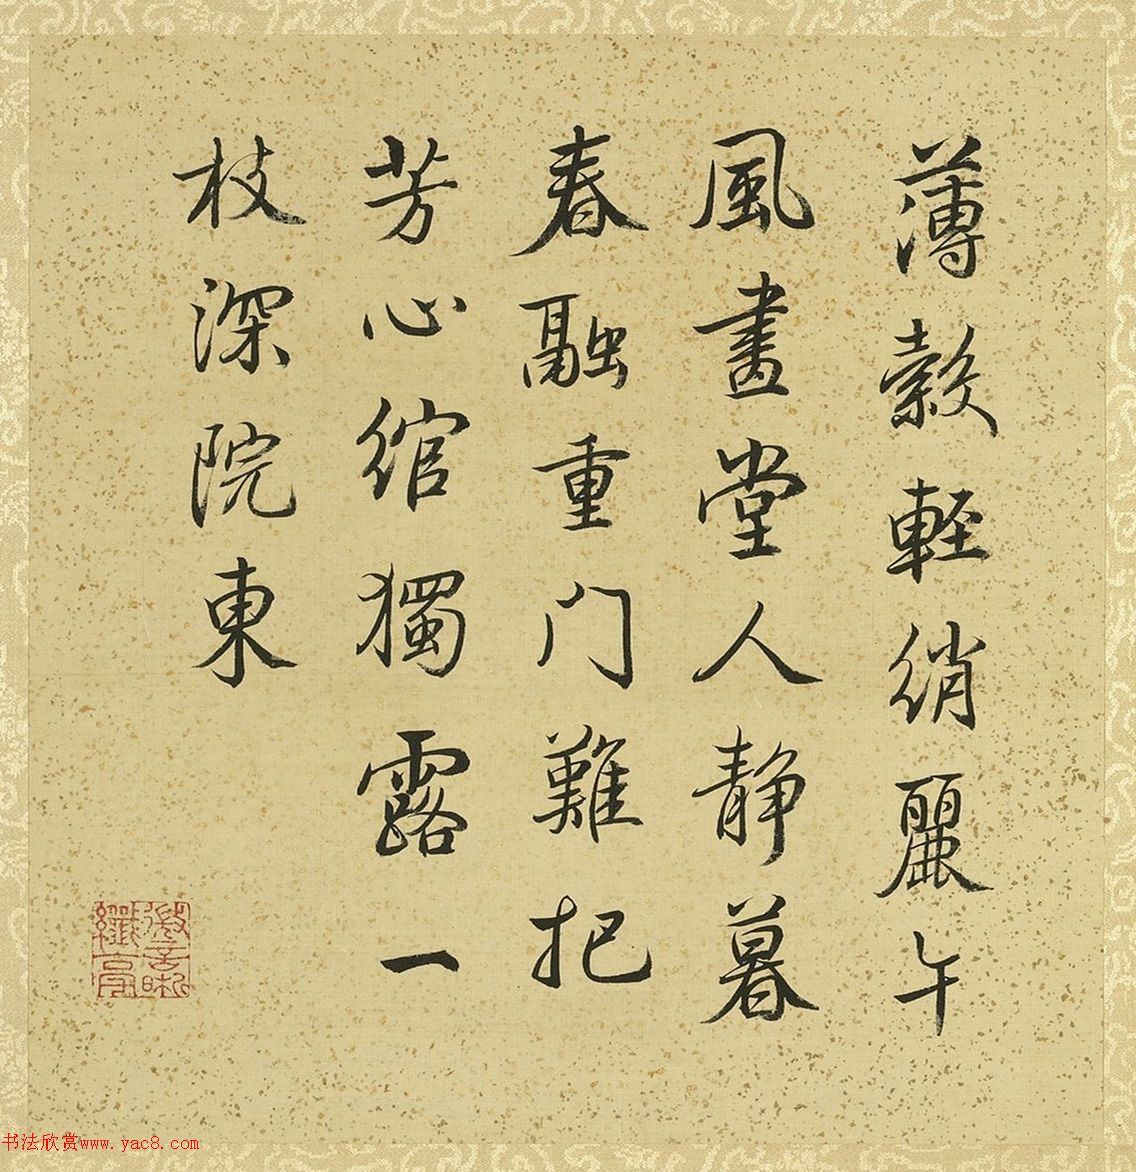 薄縠輕綃麗午
風畫堂人静暮
春融重门難把
芳心綰獨露一
枝深院東
书法欣赏www.yac8.com